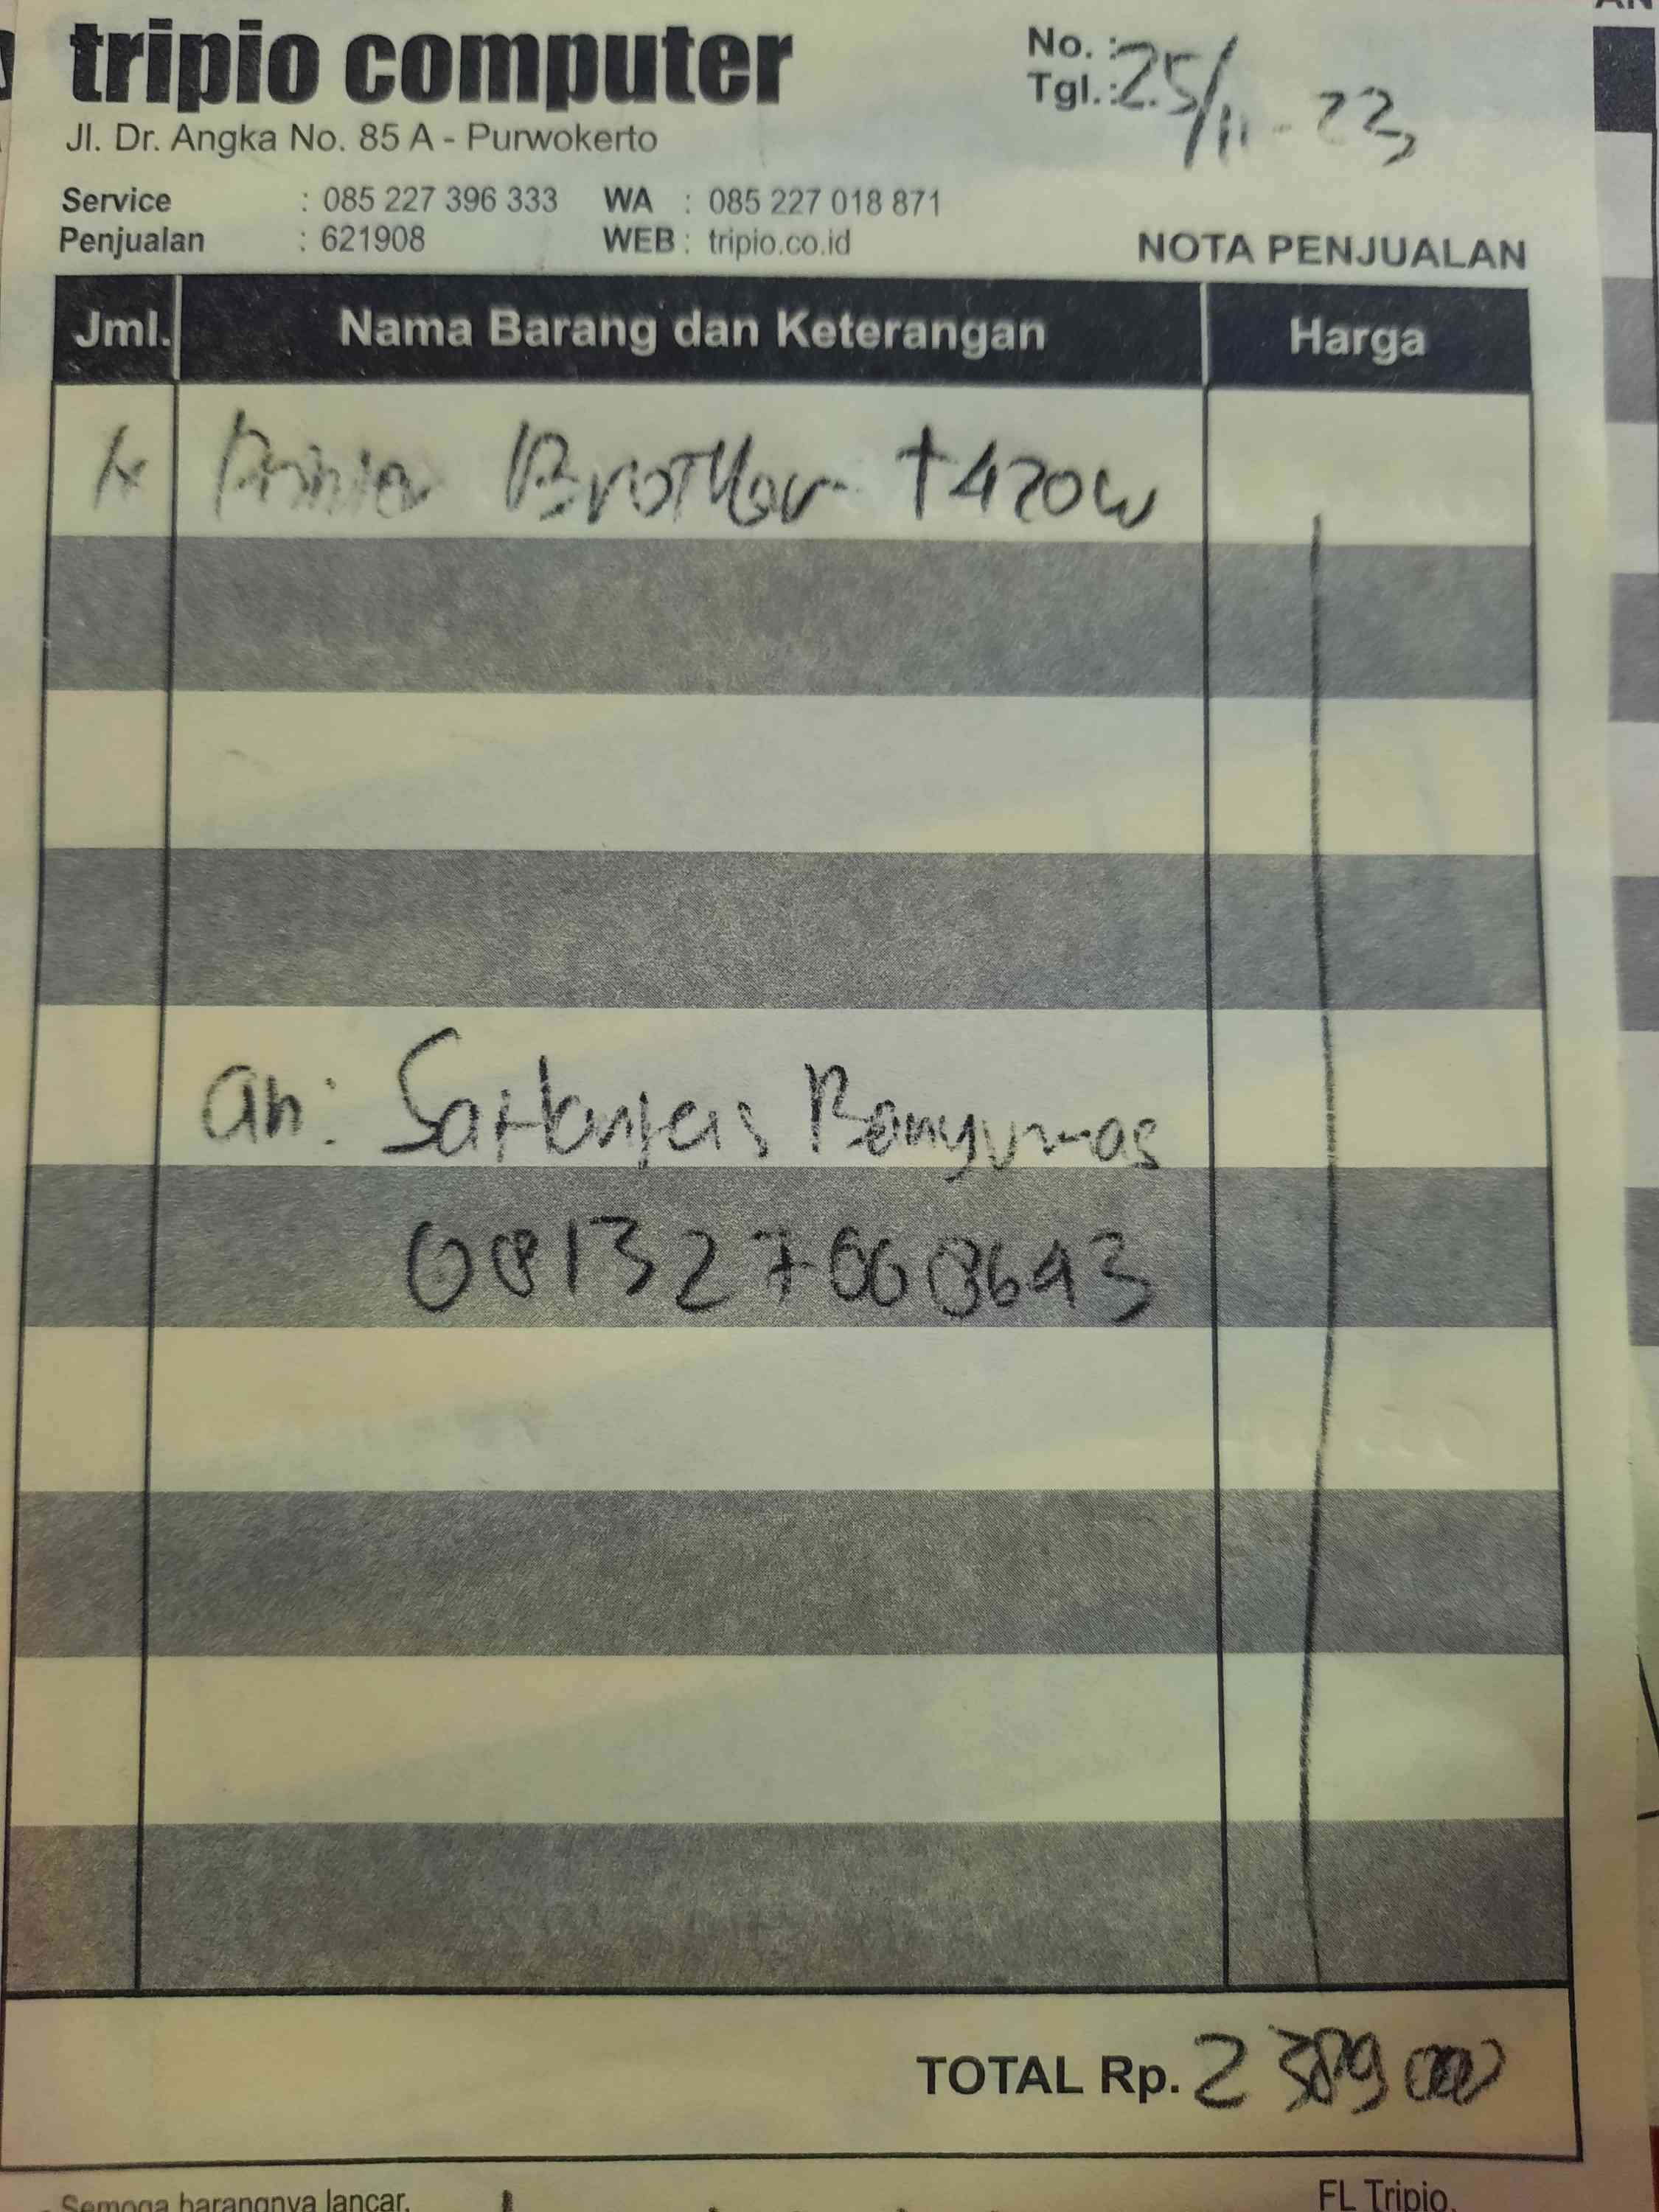 tripio computer
Jl. Dr. Angka No. 85 A - Purwokerto
No. :
Tgl. : 25/11-23
Service : 085 227 396 333 WA : 085 227 018 871
Penjualan : 621908 WEB : tripio.co.id
NOTA PENJUALAN
Jml. Nama Barang dan Keterangan Harga
1x Printer Brother T420W
an: Banyumas
TOTAL Rp. 2 389 000
Semoga barangnya lancar.
FL Tripio.